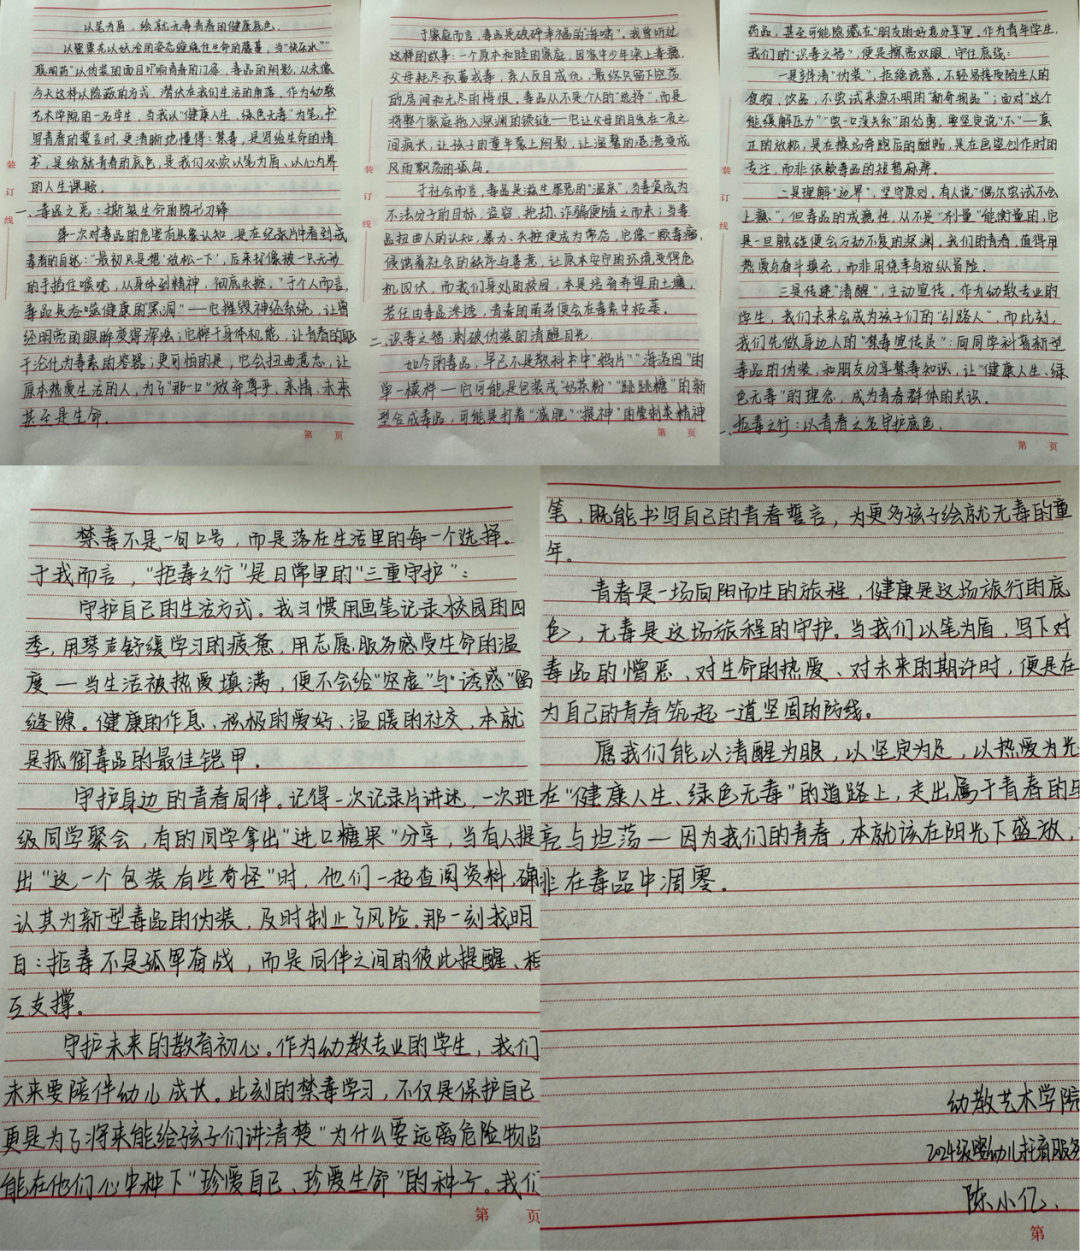 以笔为盾，绘就无毒青春的健康底色.
以罂粟花以妖冶的姿态缠绕住生命的藤蔓，当“快乐水”“
聪明药”以伪装的面目叩响青春的门扉，毒品的阴影，从未像
今天这样以隐蔽的方式，潜伏在我们生活的角落。作为幼教
艺术学院的一名学生，当我以“健康人生、绿色无毒”为笔，书
写青春的誓言时，更清晰地懂得：禁毒，是写给生命的情
书，是绘就青春的底色，是我们必须以笔为盾、以心为界
的人生课题。
一、毒品之恶：撕裂生命的隐形刃锋
第一次对毒品的危害有具象认知，是在纪录片中看到戒
毒者的自述：“最初只是想‘放松一下’，后来就像被一只无形
的手掐住喉咙，从身体到精神，彻底失控。”于个人而言，
毒品是吞噬健康的黑洞”—它摧毁神经系统，让曾
经明亮的眼眸变得浑浊；它榨干身体机能，让青春的躯
干沦什为毒素的容器；更可怕的是，它会扭曲意志，让
原本热爱生活的人，为了“那一口”放弃尊严、亲情、未来
甚至是生命.
第 页
于家庭而言，毒品是破碎幸福的“海啸”。我曾听过
这样的故事：一个原本和睦的家庭，因家中少年染上毒瘾，
父母耗尽积蓄戒毒，亲人反目成仇，最终只留下空荡
的房间和无尽的悔恨。毒品从不是个人的“选择”，而是
将整个家庭拖入深渊的锁链—它让父母的白发在一夜之
间疯长，让孩子的童年蒙上阴影，让温馨的港湾变成
风雨飘荡的孤岛。
于社会而言，毒品是滋生罪恶的“温床”，当毒资成为
不法分子的目标，盗窃、抢劫、诈骗便随之而来；当毒
品扭曲人的认知，暴力、失控便成为常态，它像一颗毒瘤，
侵蚀着社会的秩序与善意，让原本安宁的环境变得危
机四伏，而我们身处的校园，本是培育希望的土壤，
若任由毒品渗透，青春的萌芽便会在毒素中枯萎。
二、识毒之智：刺破伪装的清醒目光.
如今的毒品，早已不是教科书中“鸦片”“海洛因”的
单一模样—它可能是包装成“奶茶粉”“跳跳糖”的新
型合成毒品，可能是打着“减肥”“提神”的管制类精神
第 页
药品，甚至可能隐藏在“朋友的好意分享”里。作为青年学生，
我们的“识毒之智”，便是擦亮双眼，守住底线：
一是辩清“伪装”，拒绝诱惑，不轻易接受陌生人的
食物、饮品，不尝试来源不明的“新奇物品”；面对“这个
能缓解压力”“尝一口没关系”的怂恿，要坚定说“不”—真
正的放松，是在操场奔跑后的酣畅，是在画室创作时的
专注，而非依赖毒品的短暂麻痹。
二是理解“边界”，坚守原则，有人说“偶尔尝试不会
上瘾”，但毒品的成瘾性，从不是“剂量”能衡量的，它
是一旦触碰便会万劫不复的深渊。我们的青春，值得用
热爱与奋斗填充，而非用侥幸与放纵冒险。
三是传递“清醒”，主动宣传。作为幼教专业的
学生，我们未来会成为孩子们的“引路人”，而此刻，
我们先做身边人的“禁毒宣传员”：向同学科普新型
毒品的伪装，和朋友分享禁毒知识，让“健康人生、绿
色无毒”的理念，成为青春群体的共识。
、拒毒之行：以青春之名守护底色.
第 页
禁毒不是一句口号，而是落在生活里的每一个选择。
于我而言，“拒毒之行”是日常里的“三重守护”：
守护自己的生活方式。我习惯用画笔记录校园的四
季，用琴声舒缓学习的疲惫，用志愿服务感受生命的温
度—当生活被热爱填满，便不会给“空虚”与“诱惑”留
缝隙。健康的作息、积极的爱好、温暖的社交，本就
是抵御毒品的最佳铠甲.
守护身边的青春同伴。记得一次记录片讲述，一次班
级同学聚会，有的同学拿出“进口糖果”分享，当有人提
出“这一个包装有些奇怪”时，他们一起查阅资料，确
认其为新型毒品的伪装，及时制止了风险。那一刻我明
白：拒毒不是孤军奋战，而是同伴之间的彼此提醒、相
互支撑。
守护未来的教育初心。作为幼教专业的学生，我们
未来要陪伴幼儿成长。此刻的禁毒学习，不仅是保护自己
更是为了将来能给孩子们讲清楚“为什么要远离危险物品
能在他们心中种下“珍爱自己、珍爱生命”的种子。我们
第 页
笔，既能书写自己的青春誓言，为更多孩子绘就无毒的童
年。
青春是一场向阳而生的旅程，健康是这场旅行的底
色，无毒是这场旅程的守护。当我们以笔为盾，写下对
毒品的憎恶、对生命的热爱、对未来的期许时，便是在
为自己的青春筑起一道坚固的防线。
愿我们能以清醒为眼，以坚定为足，以热爱为光
在“健康人生、绿色无毒”的道路上，走出属于青春的
亮与坦荡—因为我们的青春，本就该在阳光下盛放，
非在毒品中凋零。
幼教艺术学院
2024级婴幼儿托育服务
陈小亿.
第
装
订
线
装
订
线
装
订
线